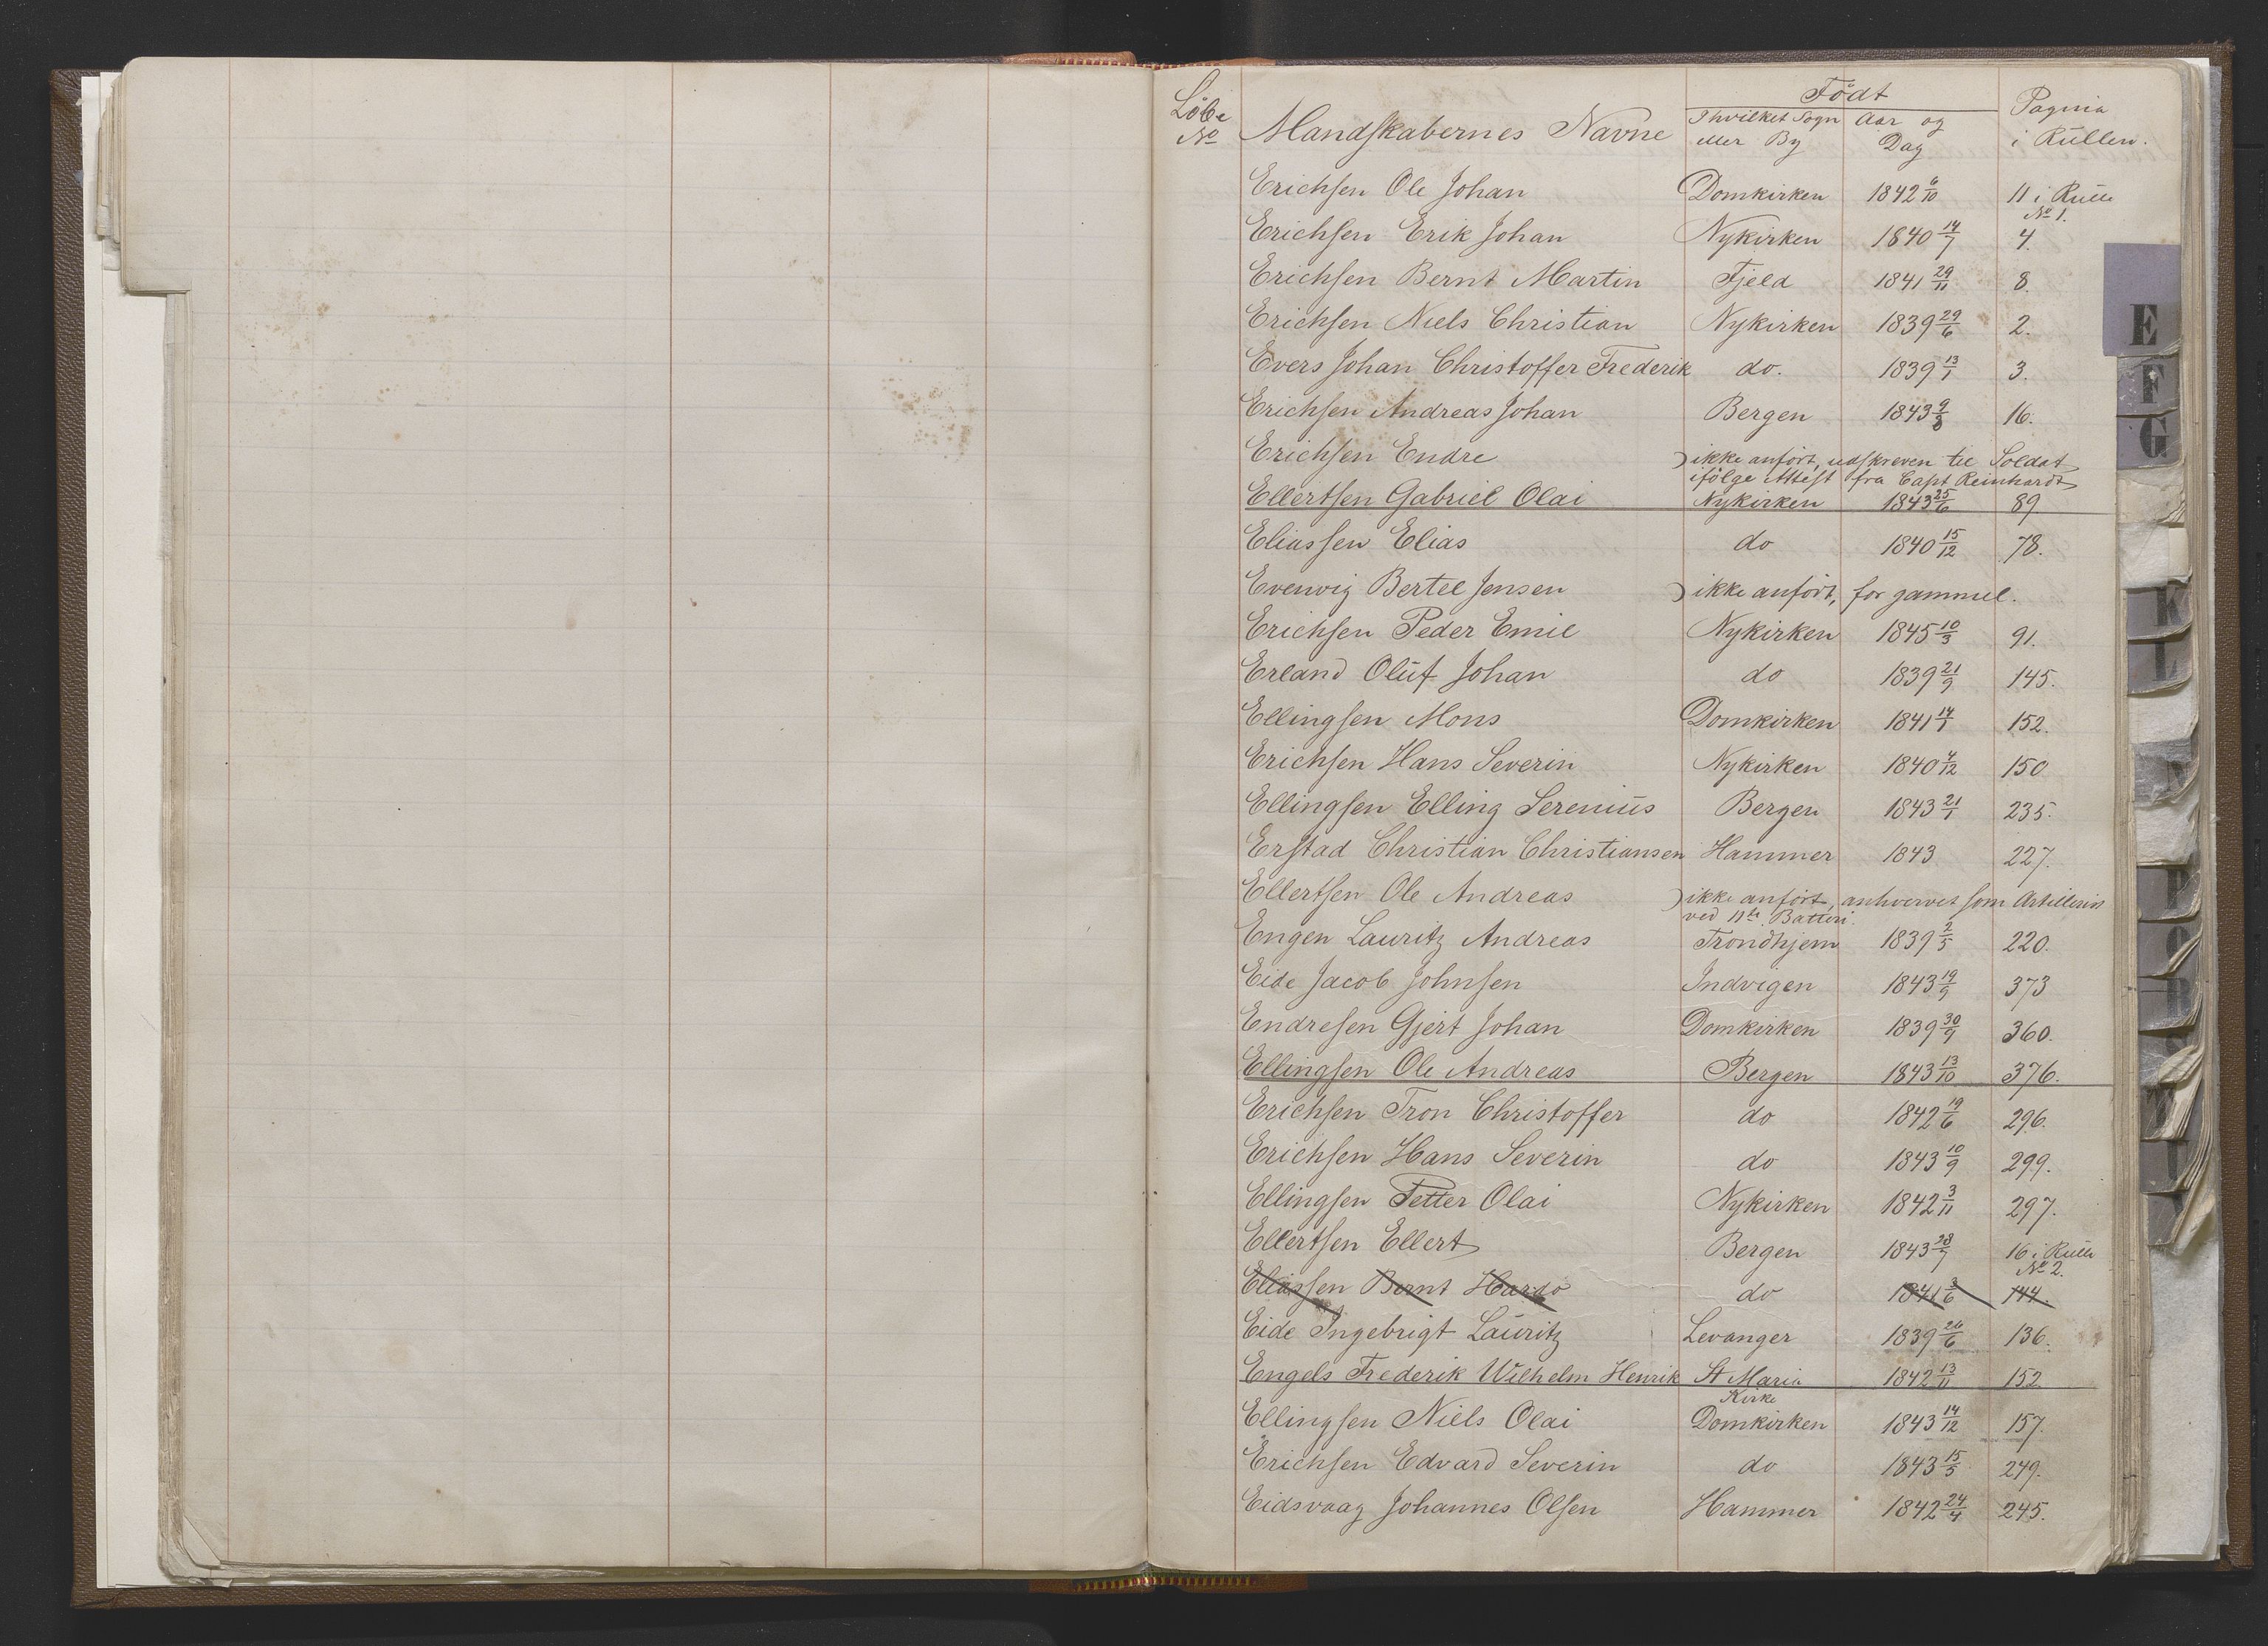 Løbe No Mandskabernes Navne Født Ihvilket Sogn eller By Aar og Dag Pagina i Rullen.
Erichsen Ole Johan Domkirken 1842 6/10 11 i Rulle No 1.
Erichsen Erik Johan Nykirken 1840 14/7 4.
Erichsen Bernt Martin Fjeld 1841 29/11 8.
Erichsen Niels Christian Nykirken 1839 29/6 2.
Evers Johan Christoffer Frederik do. 1839 13/1 3.
Erichsen Andreas Johan Bergen 1843 16.
Erichsen Endre ) ikke anført, udskreven til Soldat
ifølge Attest fra Capt Reinhardt
Ellertsen Gabriel Olai Nykirken 1843 25/6 89
Eliassen Elias do 1840 15/12 78.
Evenvig Bertel Jensen ) ikke anført, for gammel.
Erichsen Peder Emil Nykirken 1845 10/3 91.
Erland Oluf Johan do 1839 21/9 145.
Ellingsen Mons Domkirken 1841 14/1 152.
Erichsen Hans Severin Nykirken 1840 4/12 150
Ellingsen Elling Serenius Bergen 1843 21/1 235.
Erstad Christian Christiansen Hammer 1843 227.
Ellertsen Ole Andreas ) ikke anført, som Artillerist
ved 11te Batteri.
Engen Lauritz Andreas Trondhjem 1839 2/5 220.
Eide Jacob Johnsen Indvigen 1843 19/9 373
Endresen Gjert Johan Domkirken 1839 30/9 360.
Ellingsen Ole Andreas Bergen 1843 13/10 376.
Erichsen Tron Christoffer do 1842 19/6 296.
Erichsen Hans Severin do 1843 10/9 299.
Ellingsen Petter Olai Nykirken 1842 3/11 297.
Ellertsen Ellert Bergen 1843 28/7 16 i Rulle No 2.
Eliassen Bernt Hardo do 1841 3/6 144.
Eide Ingebrigt Lauritz Levanger 1839 26/6 136.
Engels Frederik Wilhelm Henrik St Maria Kirke 1842 13/11 152
Ellingsen Niels Olai Domkirken 1843 14/12 157.
Erichsen Edvard Severin do 1843 15/5 249.
Eidsvaag Johannes Olsen Hammer 1842 24/4 245.
E
F
G
K
L
N
P
R